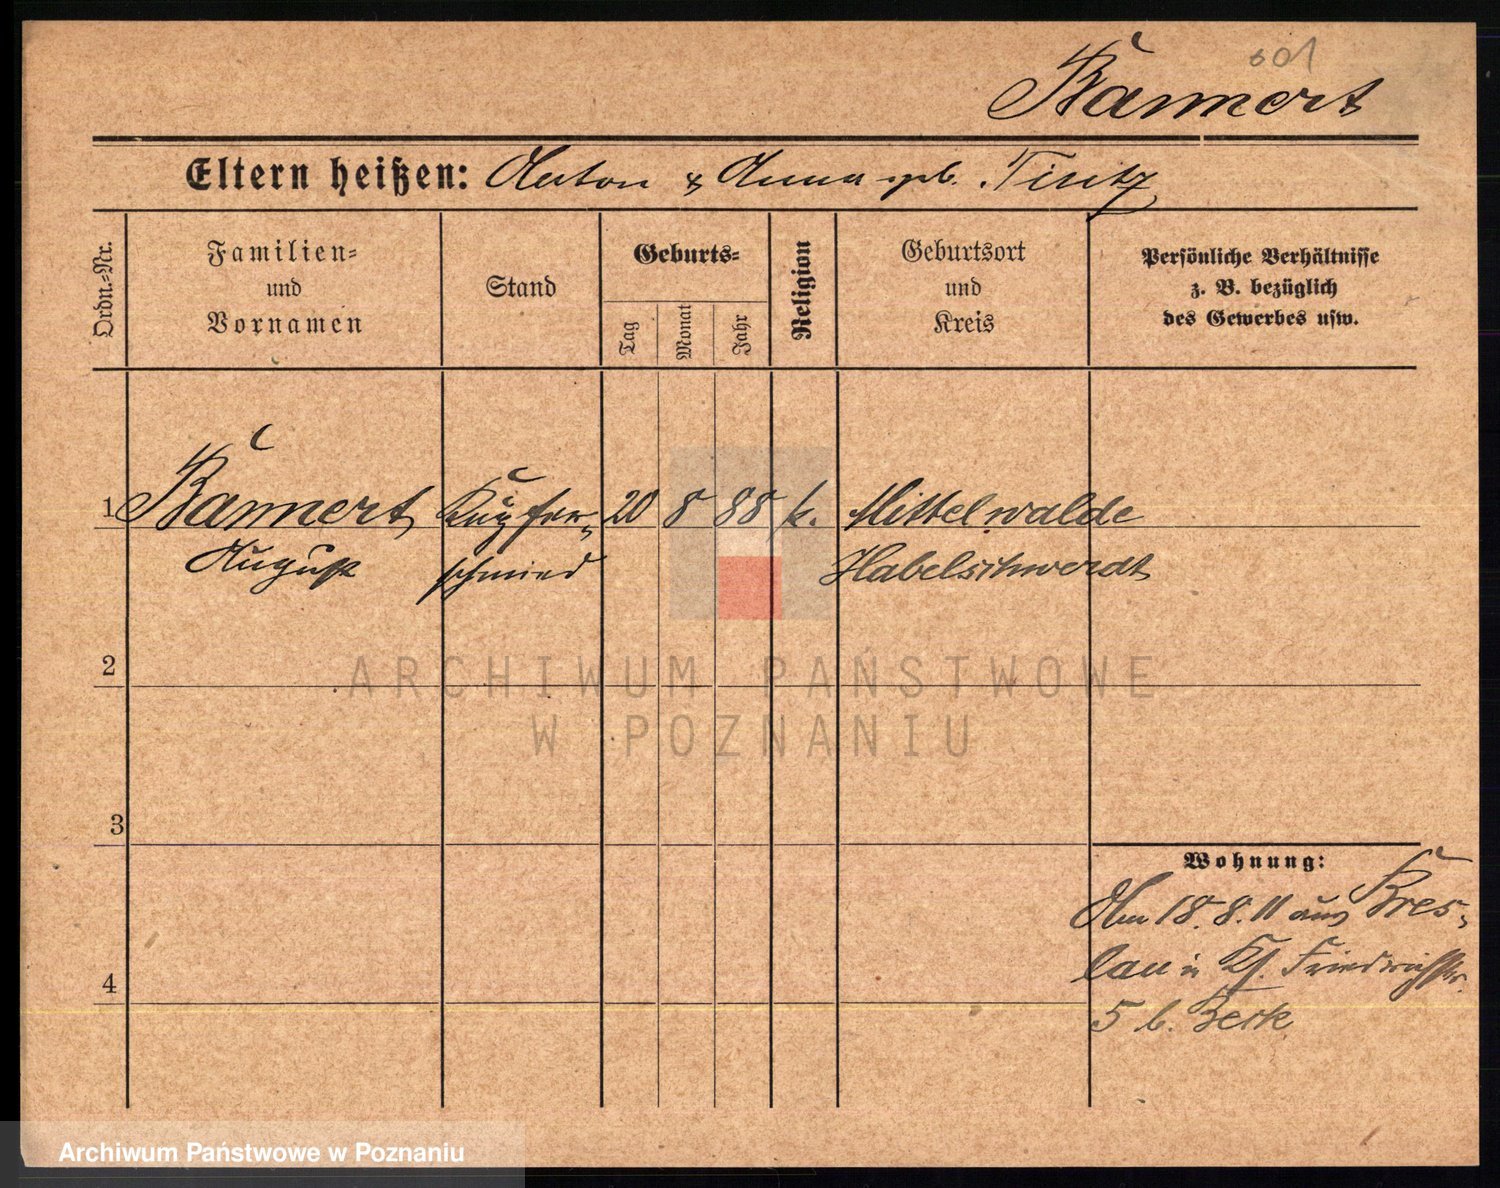 601
Bannert
Eltern heißen: Anton & Anna geb.
Ordn.-Nr.
Familien-
und
Vornamen
Stand
Geburts-
Tag
Monat
Jahr
Religion
Geburtsort
und
Kreis
Persönliche Verhältnisse
z. B. bezüglich
des Gewerbes usw.
1 Bannert Kupfer- 20 8 88 k. Mittelwalde
August schmied Habelschwerdt
2
ARCHIWUM PAŃSTWOWE
W POZNANIU
3
Wohnung:
18.8.11 aus Bres-
lau in Friedrichstr.
4
5 b.
Archiwum Państwowe w Poznaniu